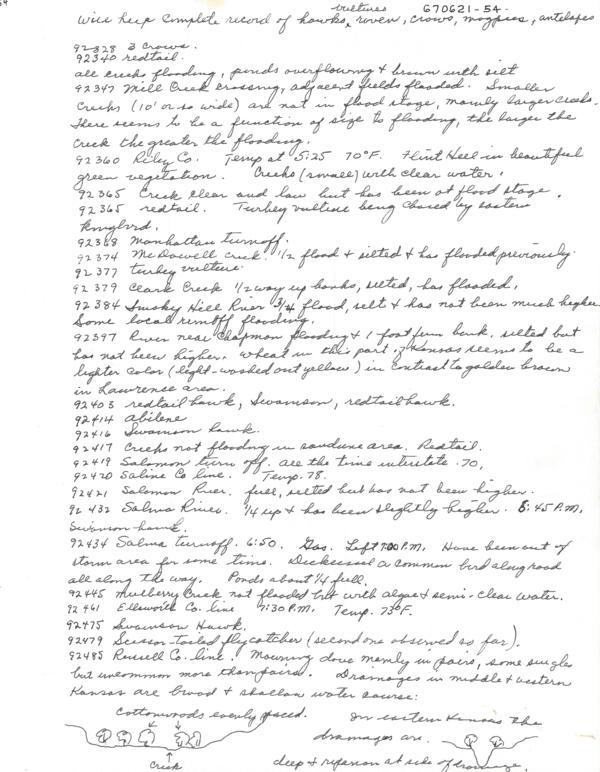 vultures 670621-54-
Will keep complete record of hawks, raven, crows, magpies, antelopes
92328 3 crows.
92340 redtail.
all creeks flooding, ponds overflowing & brown with silt
92347 Mill Creek crossing, adjacent fields flooded. Smaller
Creeks (10' or so wide) are not in flood stage, mainly larger creeks.
There seems to be a function of size to flooding, the larger the
creek the greater the flooding.
92360 Riley Co. Temp at 5:25 70°F. Flint Hill in beautiful
green vegetation. Creeks (small) with clear water.
92365 Creek clear and low but has been at flood stage.
92365 redtail. Turkey vulture being chased by eastern
kingbird.
92368 Manhattan turnoff.
92374 McDowell Creek. 1/2 flood & silted & has flooded previously.
92377 turkey vulture.
92379 Clark Creek 1/2 way up banks, silted, has flooded.
92384 Smoky Hill River 3/4 flood, silt & has not been much higher
Some local runoff flooding.
92397 River near Chapman flooding & 1 foot from bank. silted but
has not been higher. Wheat in this part of Kansas seems to be a
lighter color (light-washed out yellow) in contrast to golden brown
in Lawrence area.
92403 redtail hawk, Swainson, redtail hawk.
92414 Abilene
92416 Swainson hawk.
92417 Creeks not flooding in sandune area. Redtail.
92419 Solomon turn off. all the time interstate 70,
92420 Saline Co line. Temp. 78.
92421 Solomon River. full, silted but has not been higher.
92432 Salina River. 1/4 up & has been slightly higher. 5:45 P.M.
Swainson hawk.
92434 Salina turnoff. 6:50. Gas. Left 7:00 P.M. Have been out of
storm area for some time. Dickcissel a common bird along road
all along the way. Ponds about 1/4 full.
92445 Mulberry Creek not flooded but with algae & semi-clear water.
92461 Ellsworth Co. line 7:30 P.M. Temp. 73°F.
92475 Swainson Hawk.
92479 Scissor-tailed flycatcher (second one observed so far).
92485 Russell Co. line. Mourning dove mainly in pairs, some singles
but uncommon more than pairs. Drainages in middle & western
Kansas are broad & shallow water course:
Cottonwoods evenly spaced. In eastern Kansas the
drainages are
creek deep & riparian at side of drainage.